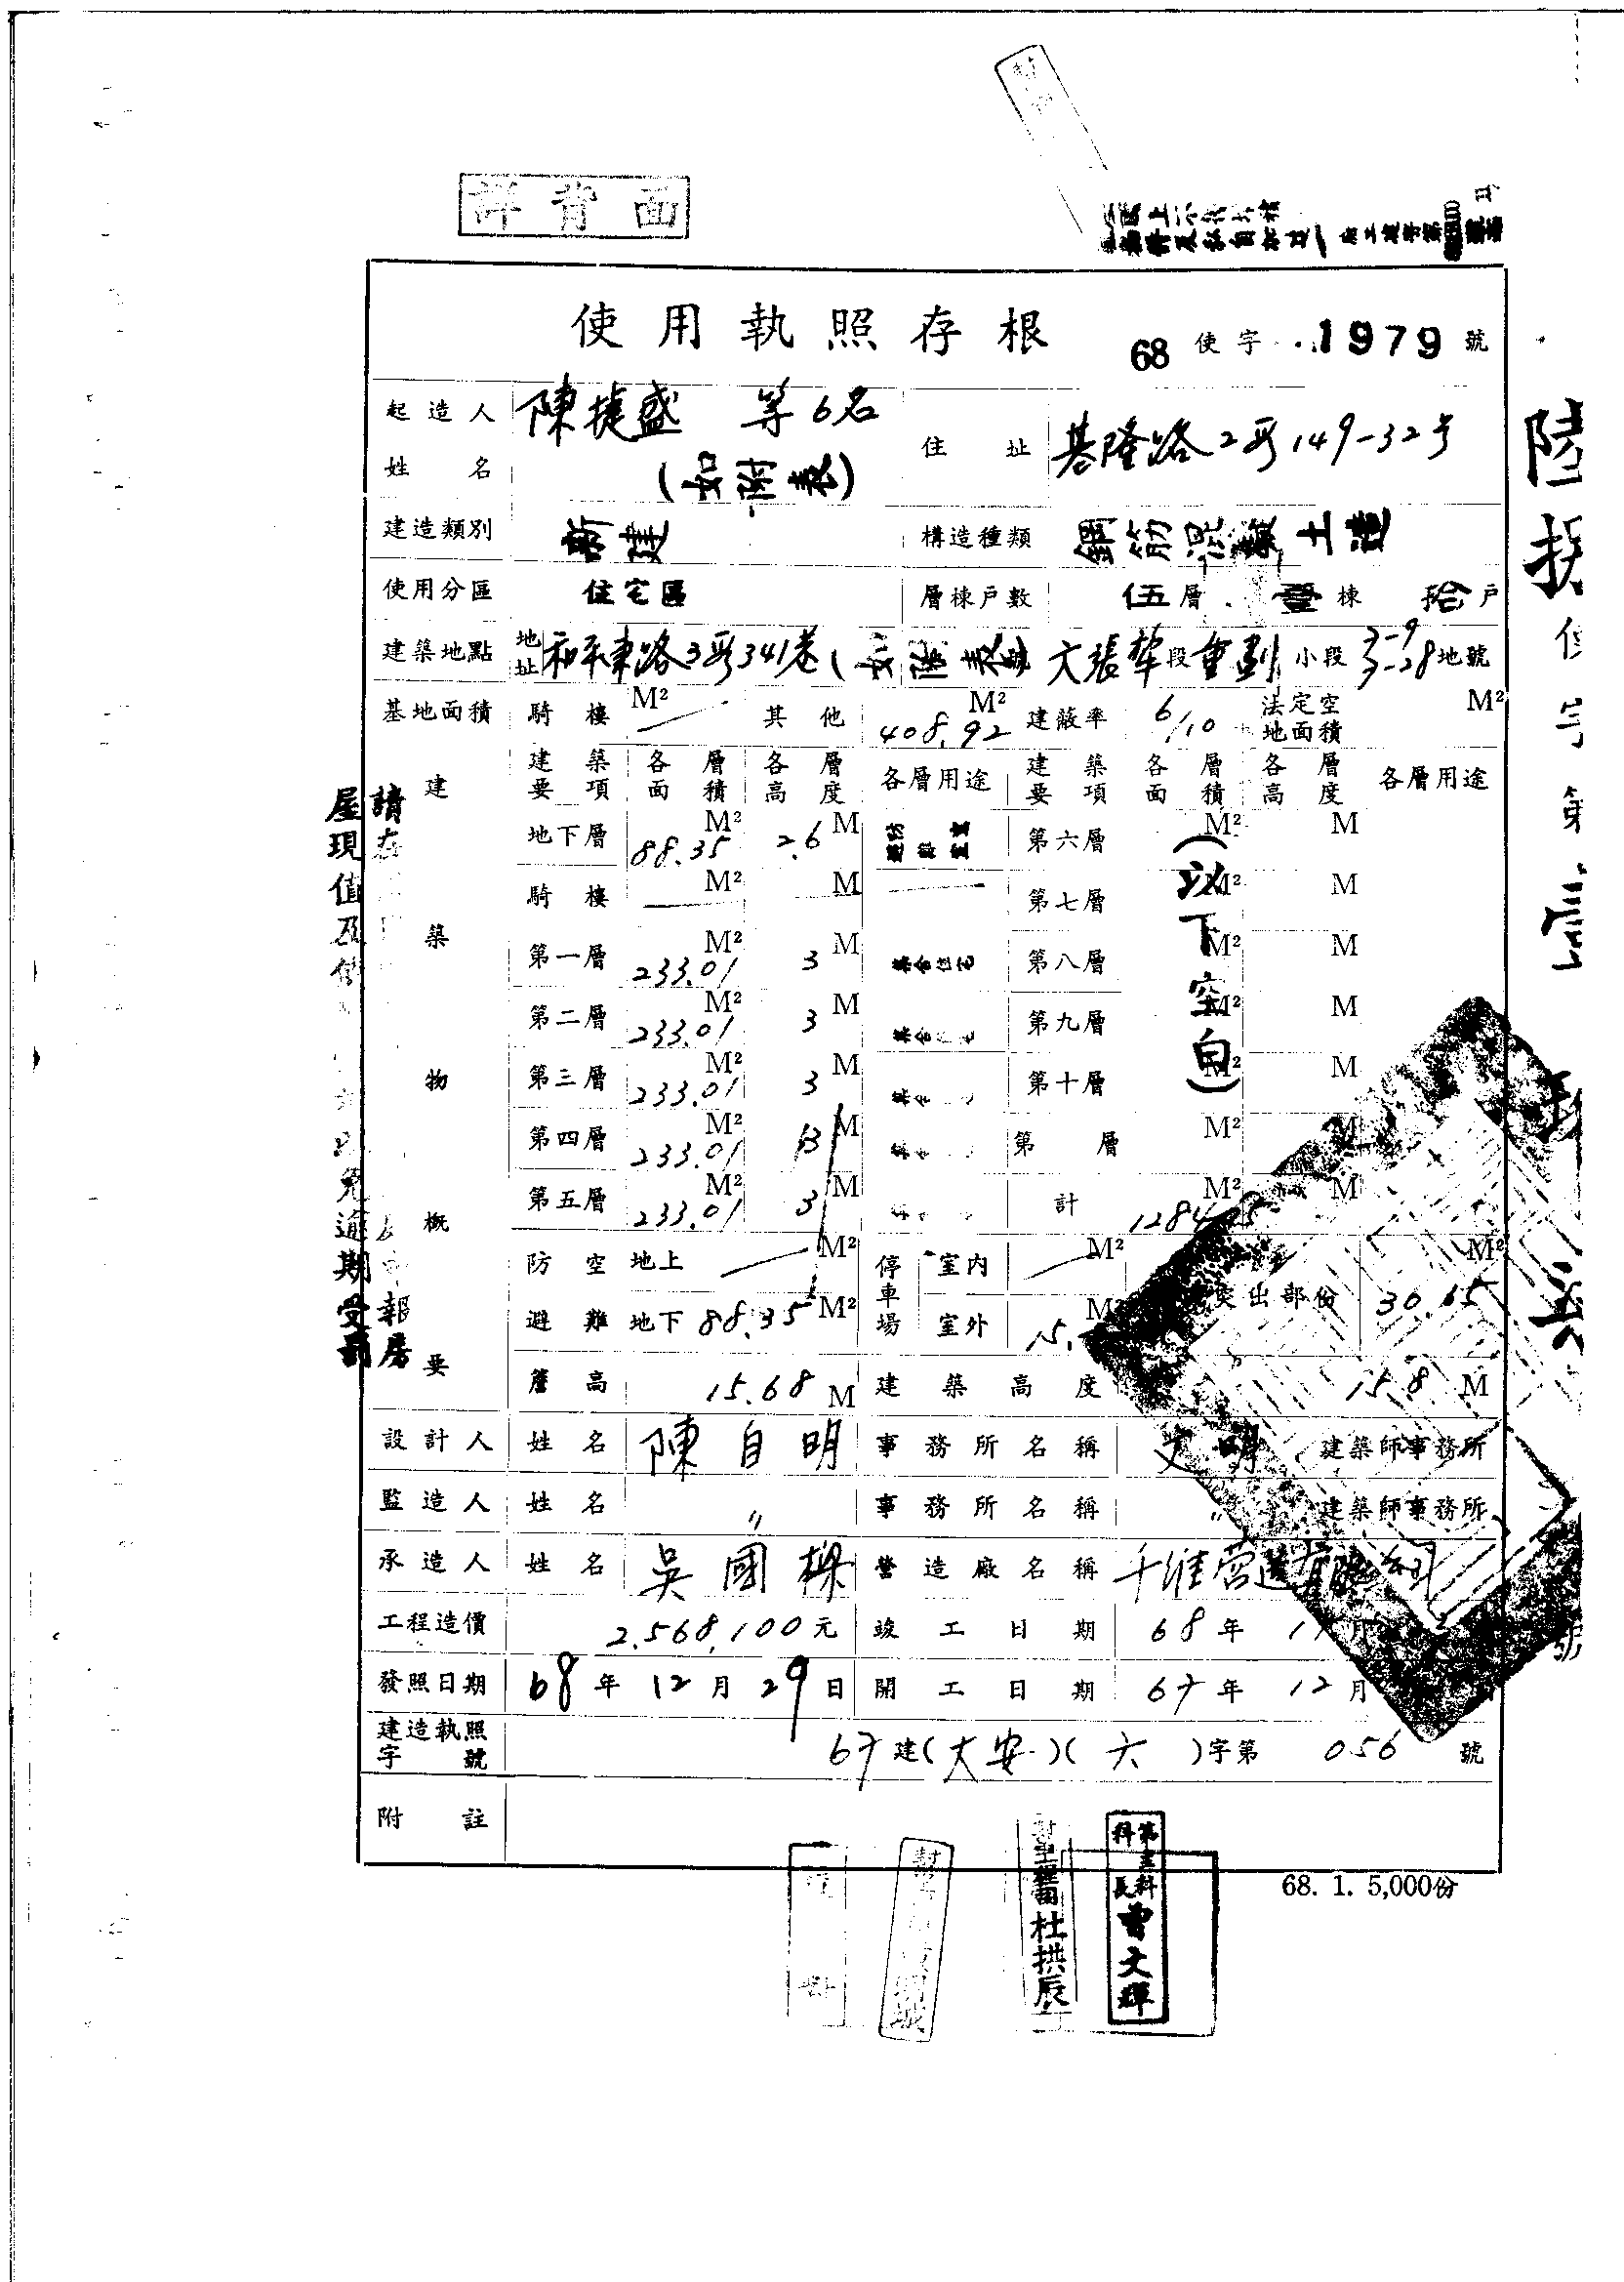 詳背面
使用執照存根 68 使字 1979 號
起造人姓名 陳捷盛 等6名 (如附表) 住址 基隆路2段149-32号
建造類別 新建 構造種類 鋼筋混凝土造
使用分區 住宅區 層棟戶數 伍層 壹棟 拾戶
建築地點 地址 和平東路3段341巷(如附表) 大張犂段重劃小段 3-9 3-28地號
基地面積 騎樓 M² 其他 408.92 M² 建蔽率 6/10 法定空地面積 M²
建築物概要
建築要項 各層面積 各層高度 各層用途 建築要項 各層面積 各層高度 各層用途
地下層 88.35 M² 2.6 M 第六層 M² M
騎樓 M² M 第七層 M² M
第一層 233.01 M² 3 M 集合住宅 第八層 M² M
第二層 233.01 M² 3 M 第九層 M² M
第三層 233.01 M² 3 M 第十層 M² M
第四層 233.01 M² 3 M 第 層 M² M
第五層 233.01 M² 3 M 計 M² M
(以下空白)
防空避難 地上 M² 地下 88.35 M² 停車場 室內 M² 室外 15. M² 突出部份 30.65 M²
簷高 15.68 M 建築高度 15.8 M
設計人 姓名 陳自明 事務所名稱 文明 建築師事務所
監造人 姓名 〃 事務所名稱 〃 建築師事務所
承造人 姓名 吳國樑 營造廠名稱 千維營造有限公司
工程造價 2,568,100元 竣工日期 68年 月
發照日期 68年12月29日 開工日期 67年12月
建造執照字號 67建(大安)(六)字第 056 號
附註
68. 1. 5,000份
杜拱辰
第三科科長 曾文輝
屋現值及使
免逾期受罰
請在
報房
陸捌使字第壹
號